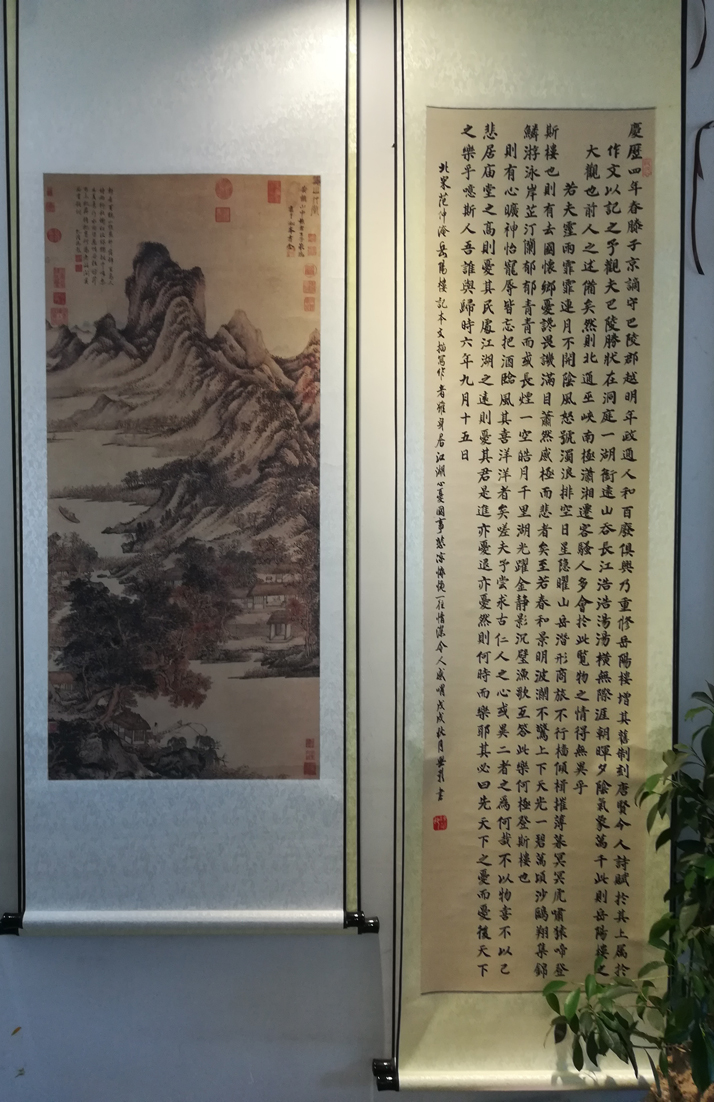 慶歷四年春滕子京謫守巴陵郡越明年政通人和百廢俱興乃重修岳陽樓增其舊制刻唐賢今人詩賦於其上屬於
作文以記之予觀夫巴陵勝狀在洞庭一湖銜遠山吞長江浩浩湯湯橫無際涯朝暉夕陰氣象萬千此則岳陽樓之
大觀也前人之述備矣然則北通巫峽南極瀟湘遷客騷人多會於此覽物之情得無異乎
若夫霪雨霏霏連月不開陰風怒號濁浪排空日星隱曜山岳潛形商旅不行檣傾楫摧薄暮冥冥虎嘯猿啼登
斯樓也則有去國懷鄉憂讒畏譏滿目蕭然感極而悲者矣至若春和景明波瀾不驚上下天光一碧萬頃沙鷗翔集錦
鱗游泳岸芷汀蘭郁郁青青而或長煙一空皓月千里湖光躍金靜影沉璧漁歌互答此樂何極登斯樓也
則有心曠神怡寵辱皆忘把酒臨風其喜洋洋者矣嗟夫予嘗求古仁人之心或異二者之為何哉不以物喜不以己
悲居庙堂之高則憂其民處江湖之遠則憂其君是進亦憂退亦憂然則何時而樂耶其必曰先天下之憂而憂後天下
之樂乎噫斯人吾誰與歸時六年九月十五日
北宋范仲淹岳陽樓記本文描寫作者雖身居江湖心憂國事悲涼慷慨一往情深令人感喟戊戌秋月書